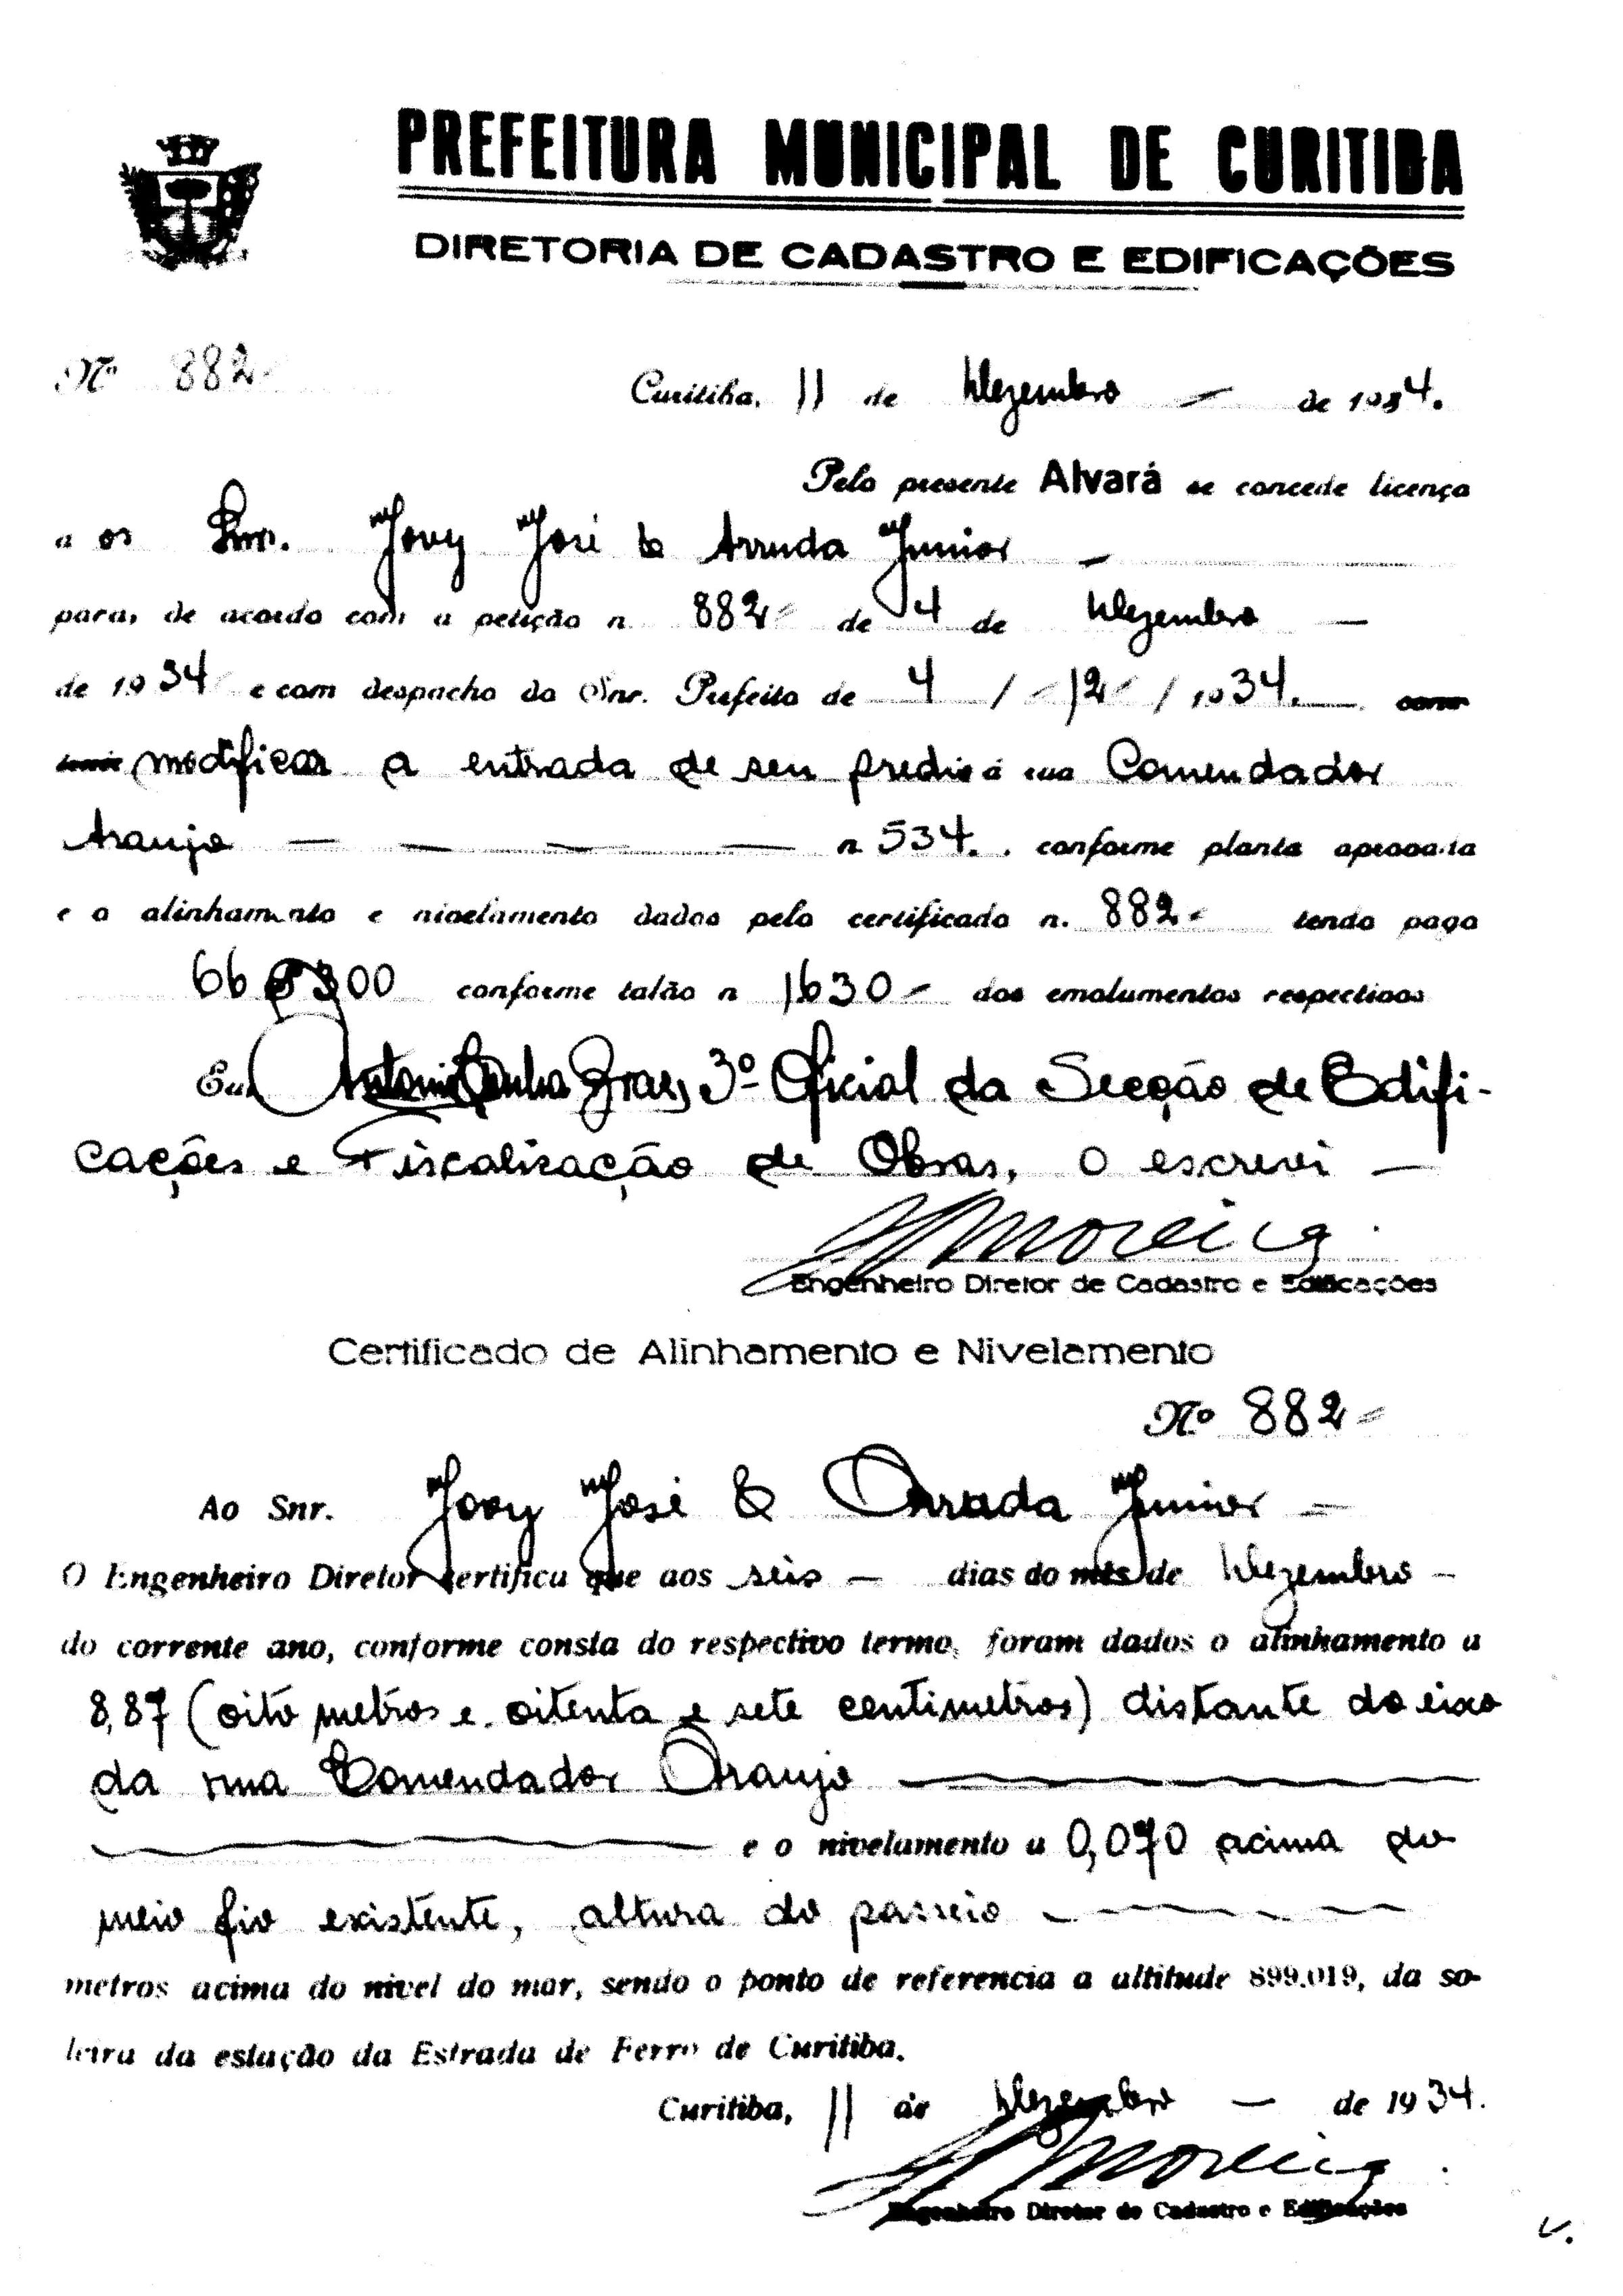 PREFEITURA MUNICIPAL DE CURITIBA
DIRETORIA DE CADASTRO E EDIFICAÇÕES
Nº 882
Curitiba, 11 de Dezembro — de 1934.
Pelo presente Alvará se concede licença
a os Snr. Jovy José & Arruda Junior —
para, de acordo com a petição n. 882 de 4 de Dezembro —
de 1934 e com despacho do Snr. Prefeito de 4 / 12 / 1934.
modificar a entrada de seu predio á rua Comendador
Araujo — — — — n 534. . conforme planta aprovada
e o alinhamento e nivelamento dados pelo certificado n. 882 tendo pago
conforme talão n 1630 dos emolumentos respectivos
Eu, Antonio Cunha Braz, 3º Oficial da Secção de Edifi-
cações e Fiscalização de Obras, o escrevi —
Moreira
Engenheiro Diretor de Cadastro e Edificações
Certificado de Alinhamento e Nivelamento
Nº 882
Ao Snr. Jovy José & Arruda Junior —
O Engenheiro Diretor certifica que aos seis — dias do mês de Dezembro —
do corrente ano, conforme consta do respectivo termo, foram dados o alinhamento a
8,87 (oito metros e oitenta e sete centimetros) distante do eixo
da rua Comendador Araujo —
— e o nivelamento a 0,070 acima do
meio fio existente, altura do passeio — — — — —
metros acima do nivel do mar, sendo o ponto de referencia a altitude 899.019, da so-
leira da estação da Estrada de Ferro de Curitiba.
Curitiba, 11 de Dezembro — de 1934.
Moreira
Engenheiro Diretor de Cadastro e Edificações
v.